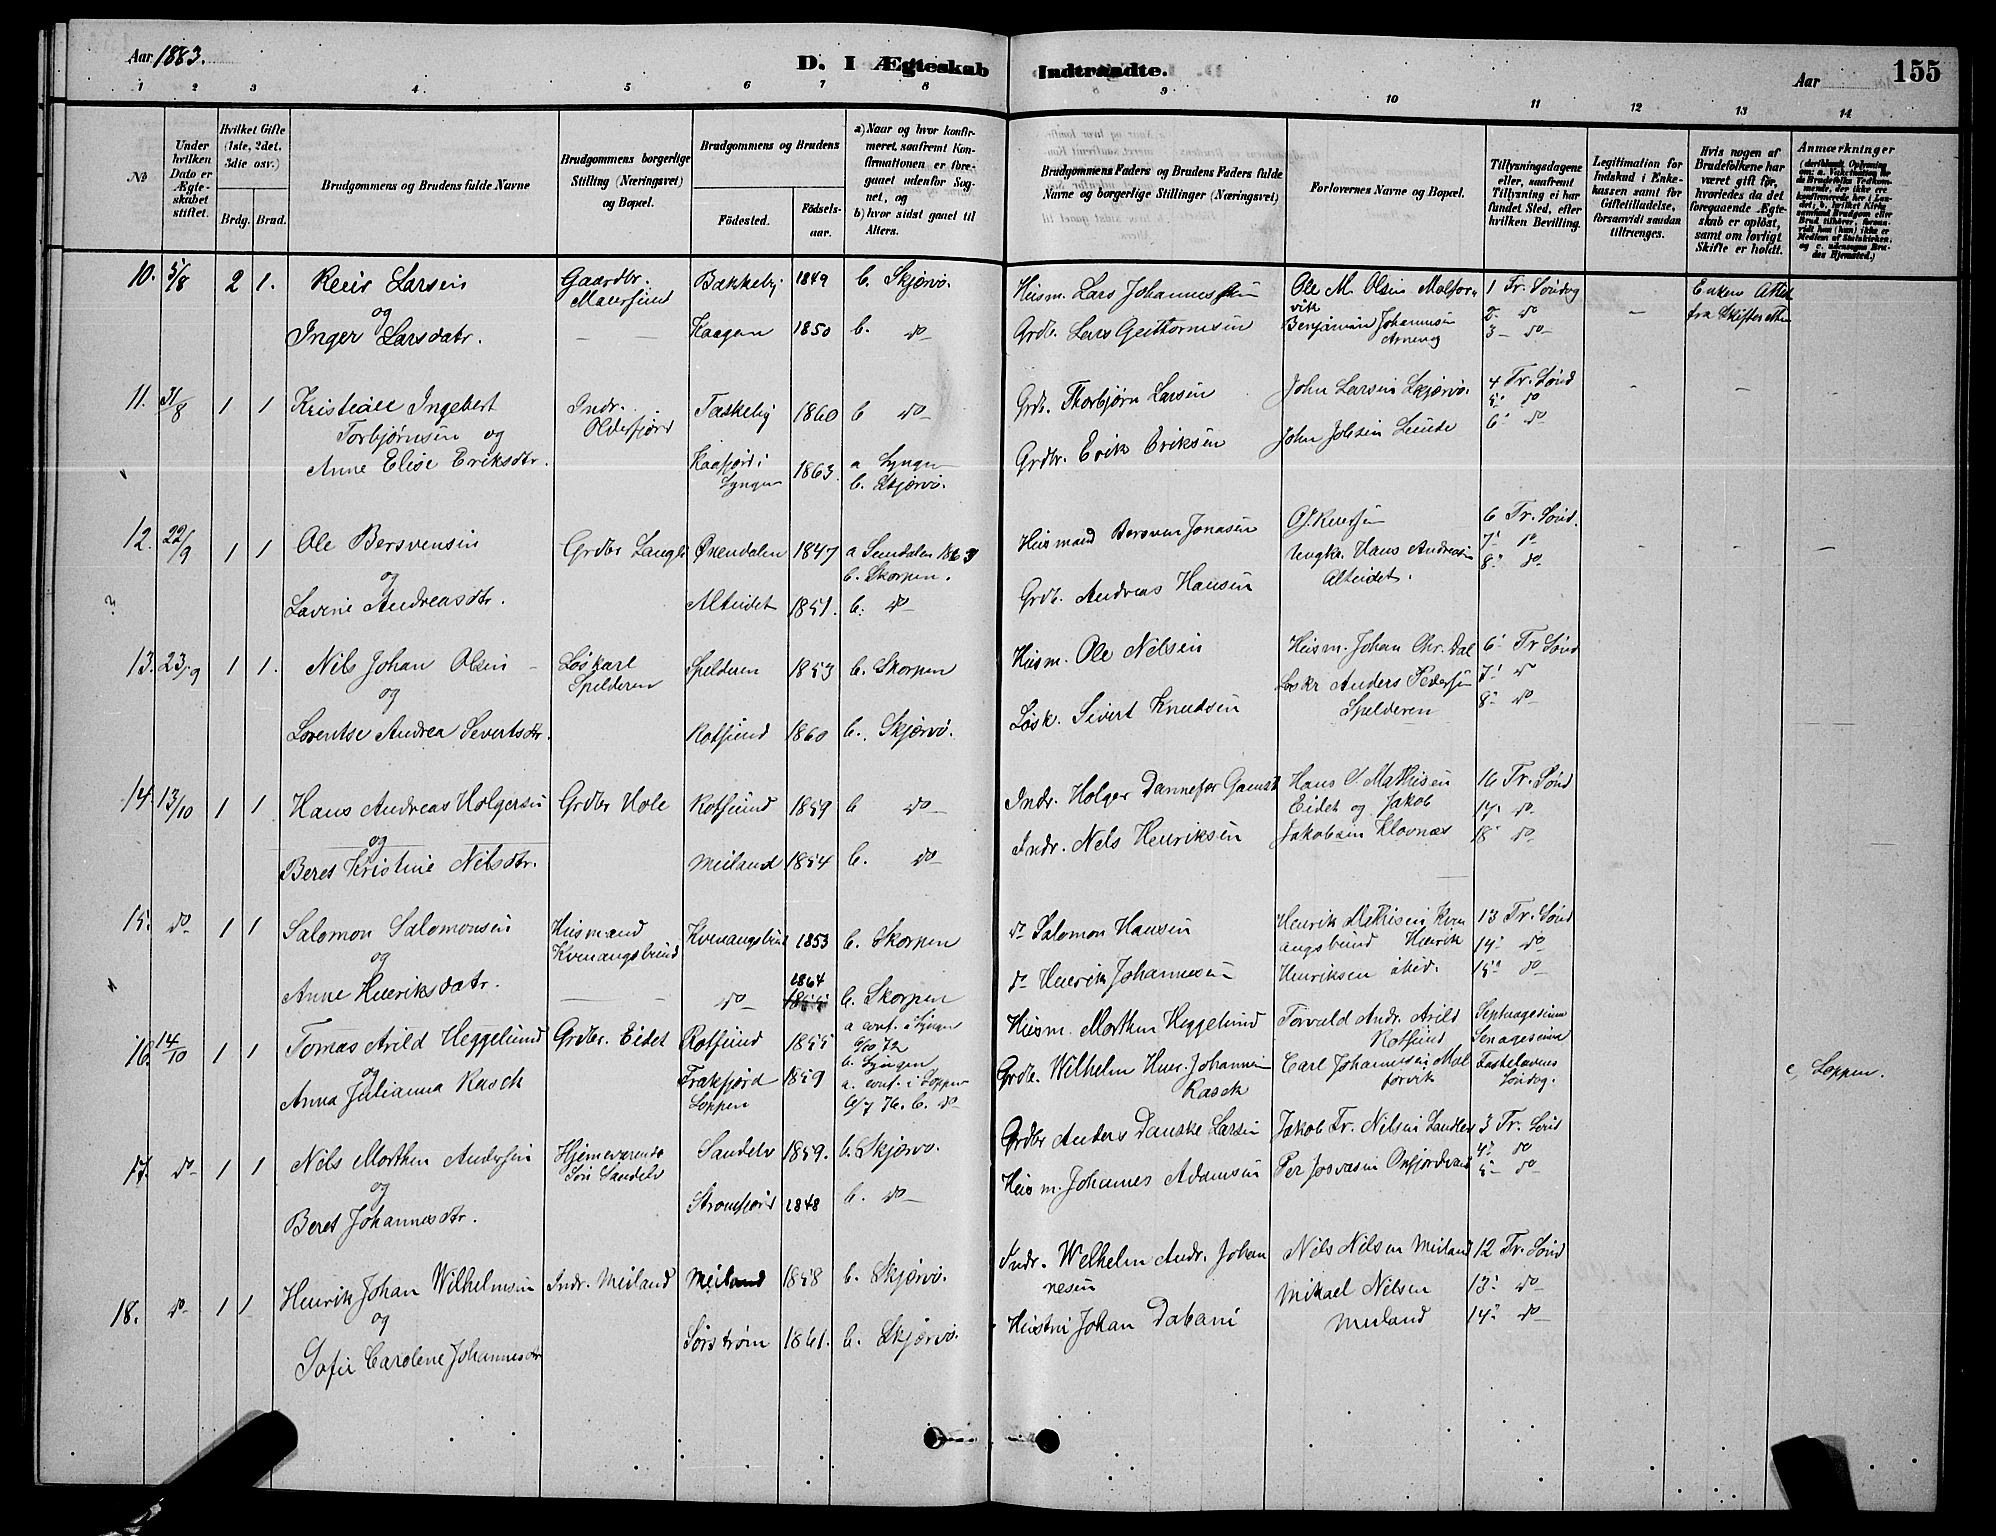 Aar 1883.
D. I Ægteskab Indtraadte.
Aar
155
1 2 3 4 5 6 7 8 9 10 11 12 13 14
No
Under hvilken Dato er Ægteskabet stiftet.
Hvilket Gifte (1ste, 2det, 3die osv.)
Brdg. Brud.
Brudgommens og Brudens fulde Navne
Brudgommens borgerlige Stilling (Næringsvei) og Bopæl.
Brudgommens og Brudens
Fødested. Fødselsaar.
a) Naar og hvor konfirmeret, saafremt Konfirmationen er foregaaet udenfor Sognet, og
b) hvor sidst gaaet til Alters.
Brudgommens Faders og Brudens Faders fulde Navne og borgerlige Stillinger (Næringsvei)
Forlovernes Navne og Bopæl.
Tillysningsdagene eller, saafremt Tillysning ei har fundet Sted, efter hvilken Bevilling.
Legitimation for Indskud i Enkekassen samt for Giftetilladelse, forsaavidt saadan tiltrænges.
Hvis nogen af Brudefolkene har været gift før, hvorledes da det foregaaende Ægteskab er opløst, samt om lovligt Skifte er holdt.
Anmærkninger
10. 5/8 2 1. Reier Larsen Gaardbr. Bakkeby 1849 b. Skjervø. Husm. Lars Johannessen Ole M. Olsen Malforvik 1 Tr. Søndag
og Maursund 2- do
Inger Larsdatr. Kaagen 1850 b. do Grdb. Lars Guttormsen Benjamin Johannesen 3- do
11. 31/8 1 1 Kristian Ingebert Indr. Taskeby 1860 b do Grdb. Thorbjørn Larsen John Larsen Skjervø. 4 Tr. Sønd
Torbjørnsen og Olderfjord 5- do
Anne Elise Eriksdtr. Kaafjord i Lyngen 1863 a Lyngen b. Skjervø. Grdbr. Erik Eriksen 6- do
12. 22/9 1 1 Ole Bersvensen Grdbr Øxendalen 1847 a Sundalen b. Skorpen. Husmand Bersven Jonasen 6 Tr. Sønd.
og Ungkr. Hans Andreasen 7- do
Lavine Andreasdtr. Alteidet 1851. b. do Grdb. Andreas Hansen Alteidet. 8- do
13. 23/9 1 1. Nils Johan Olsen Løskarl Spelderen 1853 b. Skorpen Husm. Ole Nilsen Husm. Johan Chr. Dal 6- Tr Sønd
og Spelderen Løskr Anders Pedersen 7- do
Lorentse Andrea Sivertsdtr. Rotsund 1860 b. Skjervø. Løsk. Sivert Knudsen Spelderen 8- do
14. 13/10 1 1 Hans Andreas Holgersen Grdbr Hole Rotsund 1859 b do Indr. Holger Dannefer Hans Mathisen 16 Tr. Sønd
og Eidet og Jakob 17- do
Beret Kristine Nilsdtr. Meiland 1854 b. do Indr. Nels Henriksen Jakobsen Klovnæs 18- do
15. do 1 1 Salomon Salomonsen Husmand Kvenangsbund 1853 b. Skorpen do Salomon Hansen Henrik Mathisen Kven 13 Tr. Sønd
og Kvenangsbund angsbund Henrik 14- do
Anne Henriksdatr. do 1864 b. Skorpen do Henrik Johannesen Henriksen ibid. 15- do
16. 14/10 1 1 Tomas Arild Heggelund Grdbr. Eidet Rotsund 1855 a conf. i Lyngen b. Lyngen Husm. Morthen Heggelund Torvald Andr. Arild Rotsund Septuagesima
og Sexagesima
Anna Julianna Rasch Frakfjord Loppen 1859 a. conf. i Loppen 6/7 76. b. do Grdb. Wilhelm Johannes Rasch Carl Johannesen Malforvik Fastelavens Søndag. c, Loppen.
17. do 1 1 Nils Morthen Andersen Hjemmeværende Sandelv 1859. b. Skjervø. Grdbr Anders Danske Larsen Jakob Fr. Nilsen 3 Tr. Sønd
og Sandelv 4- do
Beret Johannesdtr. Straumfjord 1848 b. do Husm. Johannes Adamsen Per Josvasen 5- do
18. do 1 1 Henrik Johan Wilhelmsen Indr. Meiland Meiland 1858 b. Skjervø. Indr. Welhelm Andr. Johannesen Nils Nilsen Meiland 12 Tr. Sønd
og Mikael Nilsen 13- do
Sofie Carolene Johannesdtr Sørstrøm 1861. b. Skjervø. Johan Dabani Meiland 14- do